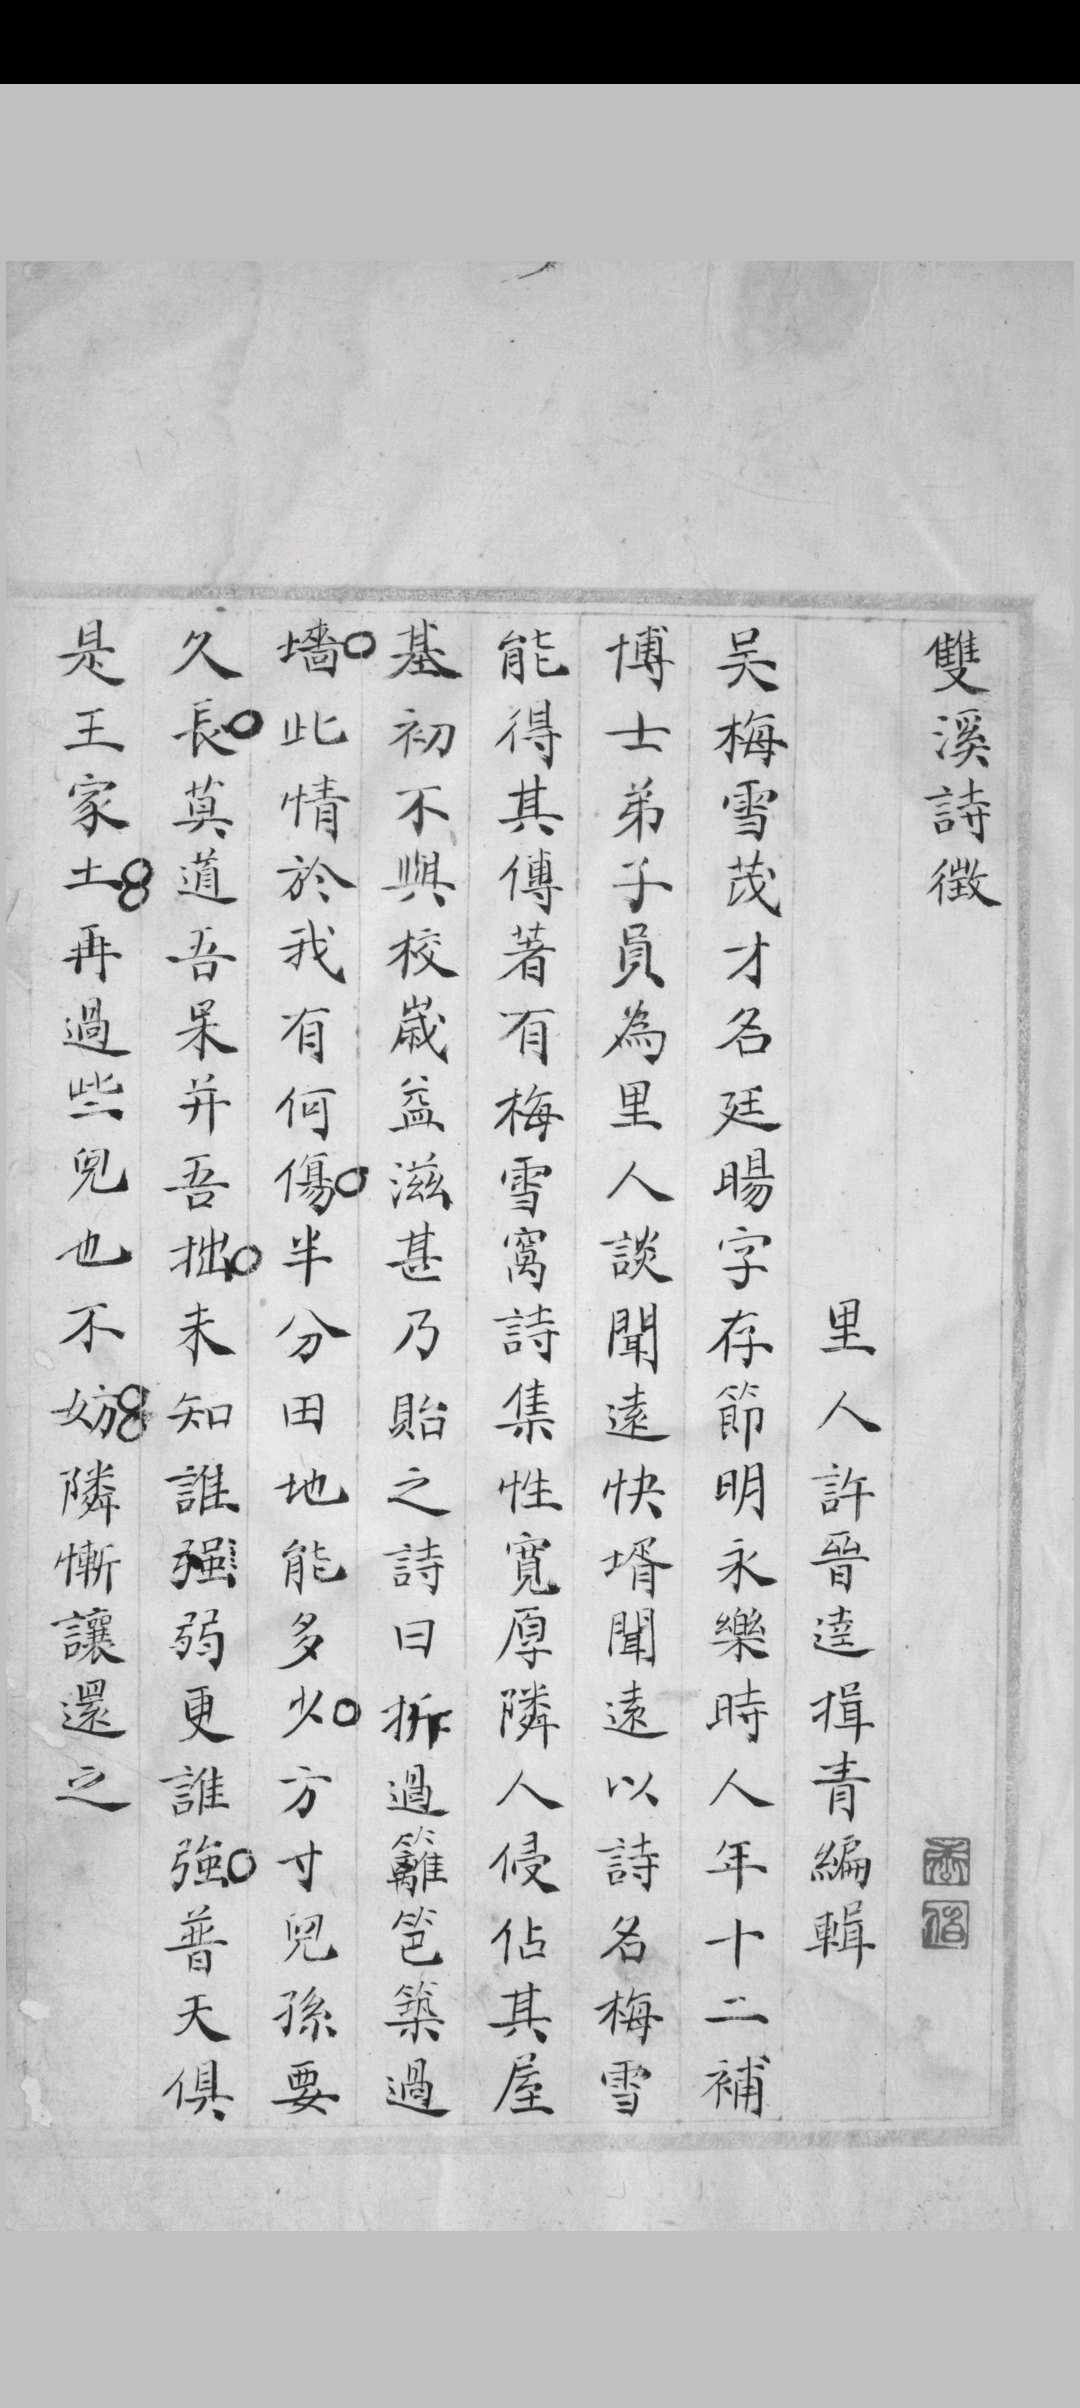 雙溪詩徵
里人許晉逵揖青編輯
吴梅雪茂才名廷暘字存節明永樂時人年十二補
博士弟子員為里人談聞遠快壻聞遠以詩名梅雪
能得其傳著有梅雪窩詩集性寬厚隣人侵佔其屋
基初不與校歲益滋甚乃貽之詩曰拆過籬笆築過
墻此情於我有何傷半分田地能多少方寸兒孫要
久長莫道吾呆并吾拙未知誰强弱更誰強普天俱
是王家土再過些兒也不妨隣慚讓還之